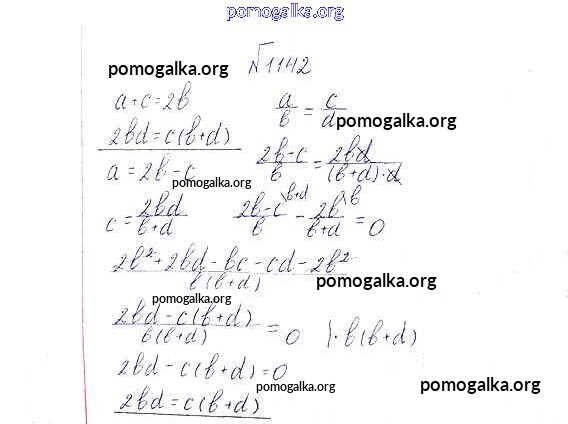 pomogalka.org
№1142
pomogalka.org
a+c=2b a/b = c/d
pomogalka.org
2bd=c(b+d)
a=2b-c (2b-c)/b = 2bd/((b+d)·d)
pomogalka.org
c=2bd/(b+d) (2b-c)/b \b+d - 2b/(b+d) \b = 0
(2b²+2bd-bc-cd-2b²)/(b(b+d))
pomogalka.org
pomogalka.org
(2bd-c(b+d))/(b(b+d)) = 0 |·b(b+d)
2bd-c(b+d)=0
pomogalka.org
pomogalka.org
2bd=c(b+d)